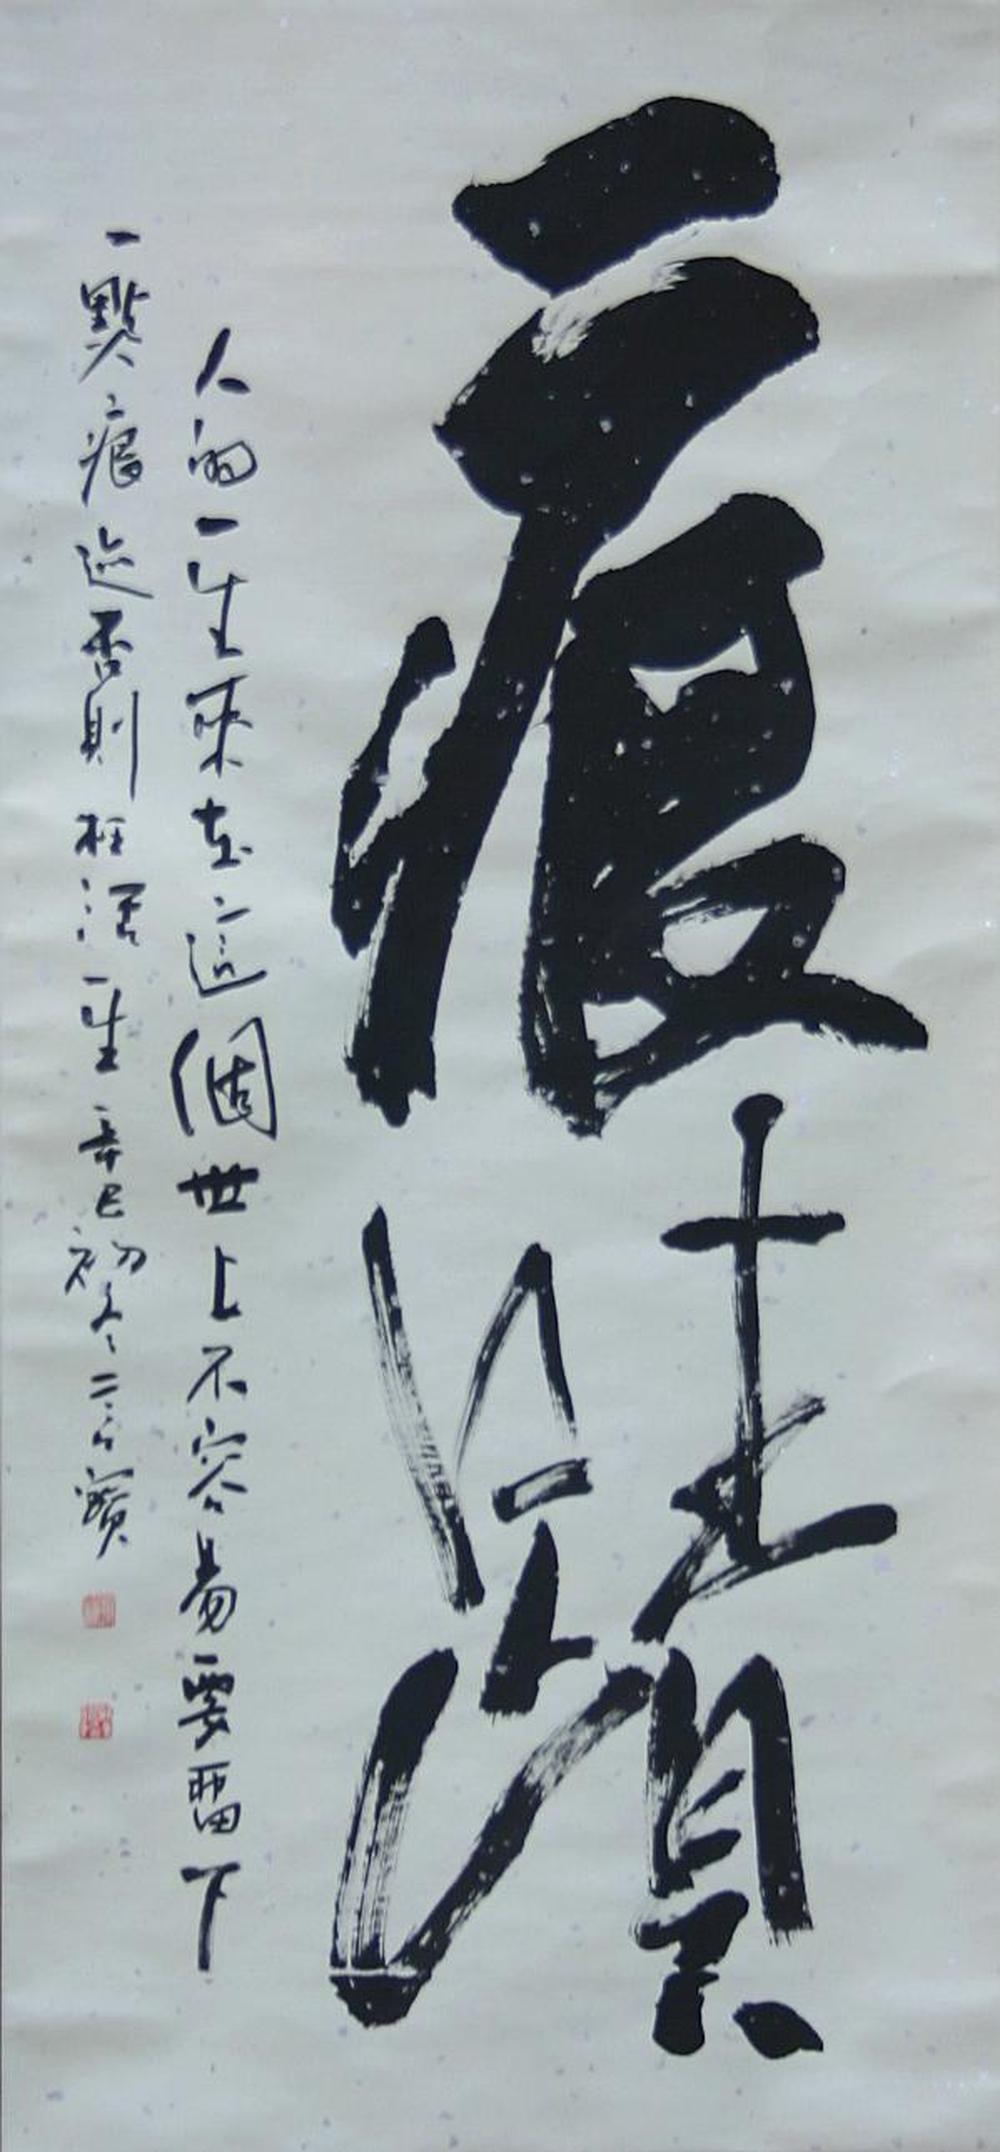 痕蹟
人的一生來在這個世上不容易要留下
一點痕迹否則枉活一生辛巳初冬二公寶